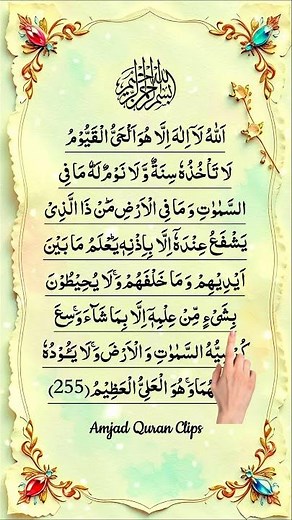 بسم الله الرحمن الرحيم
اَللّٰهُ لَاۤ اِلٰهَ اِلَّا هُوَ اَلْحَیُّ الْقَیُّوْمُ
لَا تَاْخُذُهٗ سِنَةٌ وَّ لَا نَوْمٌ لَهٗ مَا فِی
السَّمٰوٰتِ وَ مَا فِی الْاَرْضِ مَنْ ذَا الَّذِیْ
یَشْفَعُ عِنْدَهٗۤ اِلَّا بِاِذْنِهٖ یَعْلَمُ مَا بَیْنَ
اَیْدِیْهِمْ وَ مَا خَلْفَهُمْ وَ لَا یُحِیْطُوْنَ
بِشَیْءٍ مِّنْ عِلْمِهٖۤ اِلَّا بِمَا شَآءَ وَسِعَ
السَّمٰوٰتِ وَ الْاَرْضَ وَ لَا یَـُٔوْدُهٗ
وَ هُوَ الْعَلِیُّ الْعَظِیْمُ (255)
Amjad Quran Clips